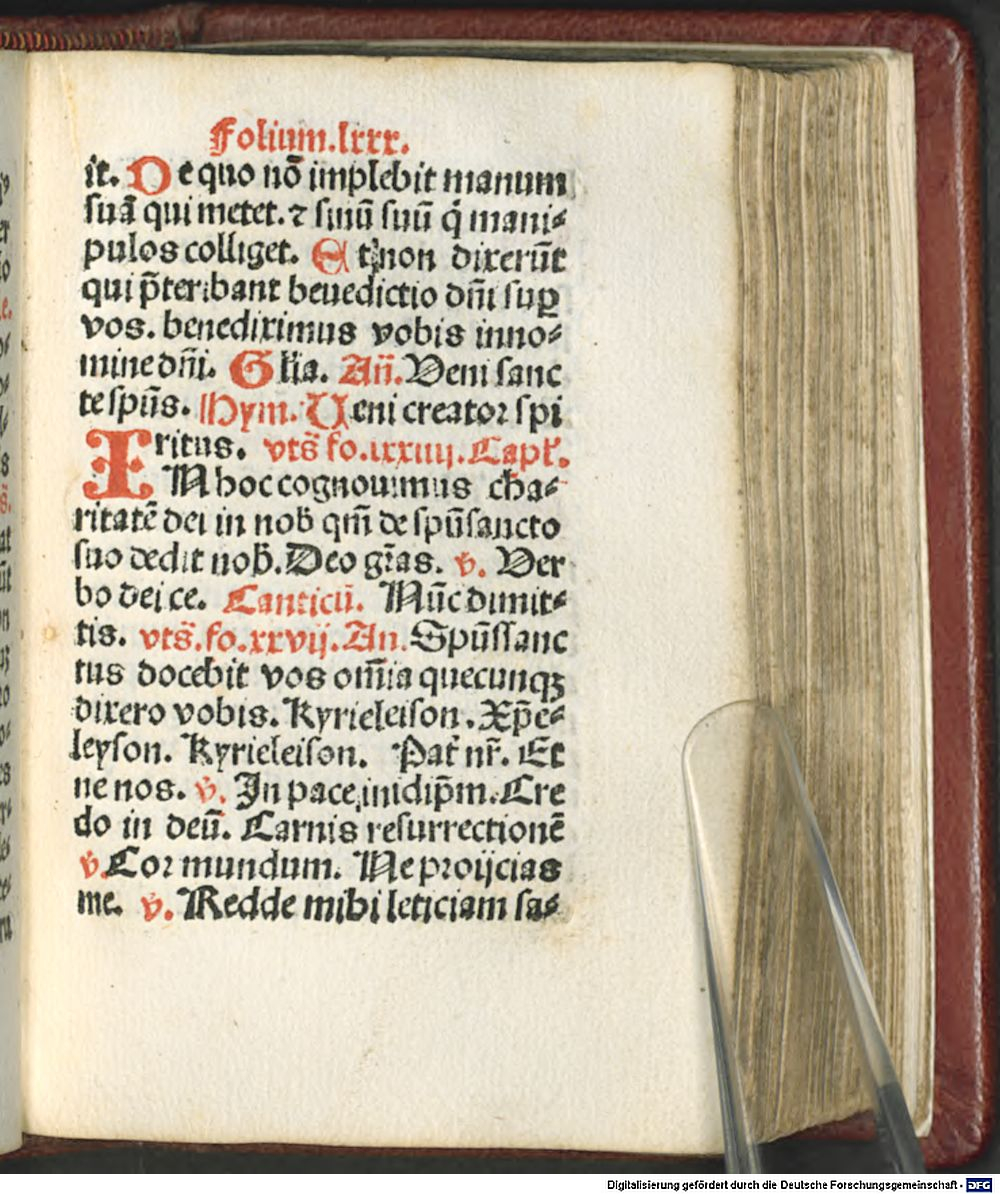 Folium.lxxx.
it. De quo nō implebit manum
suā qui metet. ⁊ sinū suū q̇ mani⸗
pulos colliget. Et non dixerūt
qui p̄teribant beuedictio dn̄i suꝑ
vos. benediximus vobis inno⸗
mine dn̄i. Glīa. An̄. Veni sanc
te spūs. Hym. Ueni creator spi
ritus. vts̄ fo.lxxiiij. Capt̄.
IN hoc cognouimus cha⸗
ritatē dei in nob̄ qm̄ de spūsancto
suo dedit nob̄. Deo gr̄as. v̄. Ver
bo dei ce. Canticū. Nūc dimit⸗
tis. vts̄. fo. xxvij. An. Spūssanc
tus docebit vos om̄ia quecunqꝫ
dixero vobis. Kyrieleison. Xp̄e⸗
leyson. Kyrieleison. Pat̄ nr̄. Et
ne nos. v̄. In pace inidip̄m. Cre
do in deū. Carnis resurrectionē
v̄. Cor mundum. Ne proijcias
me. v̄. Redde mihi leticiam sa⸗
Digitalisierung gefördert durch die Deutsche Forschungsgemeinschaft - DFG